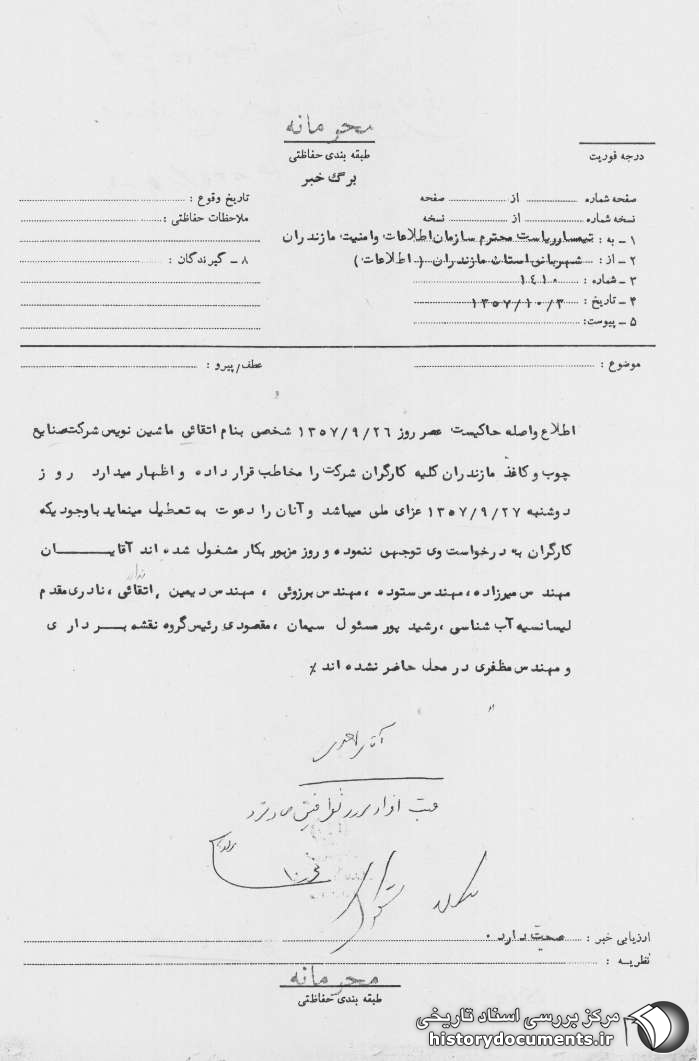 محرمانه
طبقه بندی حفاظتی
درجه فوریت
برگ خبر
صفحه شماره از صفحه
نسخه شماره از نسخه
۱ ـ به : تیمسار ریاست محترم سازمان اطلاعات وامنیت مازندران
۲ ـ از : شهربانی استان مازندران ( اطلاعات )
۳ ـ شماره : ۱٤۱۰
۴ ـ تاریخ : ۱۳۵۷/۱۰/۳
۵ ـ پیوست:
تاریخ وقوع :
ملاحظات حفاظتی :
۸ ـ گیرندگان :
موضوع :
عطف/پیرو :
اطلاع واصله حاکیست عصر روز ۱۳۵۷/۹/۲٦ شخصی بنام اتقائی ماشین نویس شرکت صنایع
چوب و کاغذ مازندران کلیه کارگران شرکت را مخاطب قرار داده و اظهار میدارد روز
دوشنبه ۱۳۵۷/۹/۲۷ عزای ملی میباشد و آنان را دعوت به تعطیل مینماید با وجودیکه
کارگران به درخواست وی توجهی ننموده و روز مزبور بکار مشغول شده اند آقایــــان
مهندس میرزاده ، مهندس ستوده ، مهندس برزوئی ، مهندس دیمین ، اتقائی ، نادری مقدم
لیسانسیه آب شناسی ، رشید پور مسئول سیمان ، مقصودی رئیس گروه نقشه بـــرداری
و مهندس مظفری در محل حاضر نشده اند ٪
ارزیابی خبر : صحیت دارد ۰
نظریـه :
محرمانه
طبقه بندی حفاظتی
مرکز بررسی اسناد تاریخی
historydocuments.ir